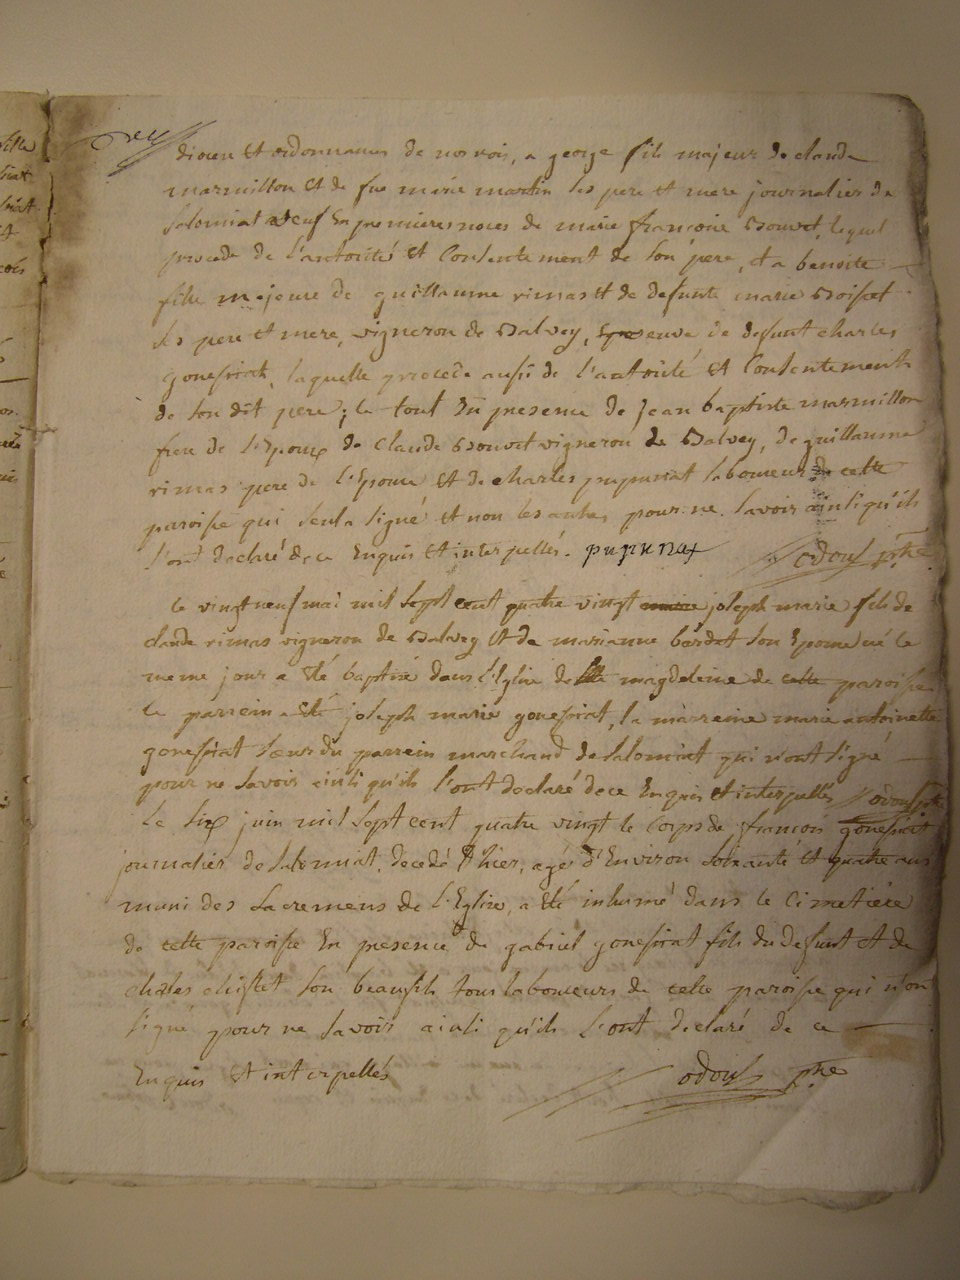 diocese et ordonnances de nos rois, a george fils majeur de claude
marmillon et de fue marie martin ses pere et mere journalier de
salomiat veuf en premieres noces de marie françoise bouvet, lequel
procede de l'autorité et consentement de son pere, et a benoite
fille majeure de guillaume rimas et de defunte marie boisset
ses pere et mere, vigneron de balvey, veuve de defunt charles
gonefirat, laquelle procede aussi de l'autorité et consentement
de son dit pere; le tout en presence de jean baptiste marmillon
frere de l'epoux de claude bouvet vigneron de balvey, de guillaume
rimas pere de l'epouse et de charles pupunat laboureur de cette
paroisse qui seul a signé et non les autres pour ne savoir ainsi qu'ils
l'ont declaré de ce enquis et interpellés. pupunat odoul ptre
le vingt neuf mai mil sept cent quatre vingt joseph marie fils de
claude rimas vigneron de balvey et de marianne bardet son epouse né le
meme jour a eté baptisé dans l'eglise de magdeleine de cette paroisse
le parrein a eté joseph marie gonefirat, la marreine marie antoinette
gonefirat soeur du parrein marchand de salomiat qui n'ont signé
pour ne savoir ainsi qu'ils l'ont declaré de ce enquis et interpellés odoul ptre
le six juin mil sept cent quatre vingt le corps de francois gonefirat
journalier de salomiat, decedé hier, agé d'environ soixante et quatre ans
muni des sacremens de l'eglise, a eté inhumé dans le cimetiere
de cette paroisse en presence de gabriel gonefirat fils du defunt et de
charles son beaufils tous laboureurs de cette paroisse qui n'ont
signé pour ne savoir ainsi qu'ils l'ont declaré de ce
enquis et interpellés odoul ptre